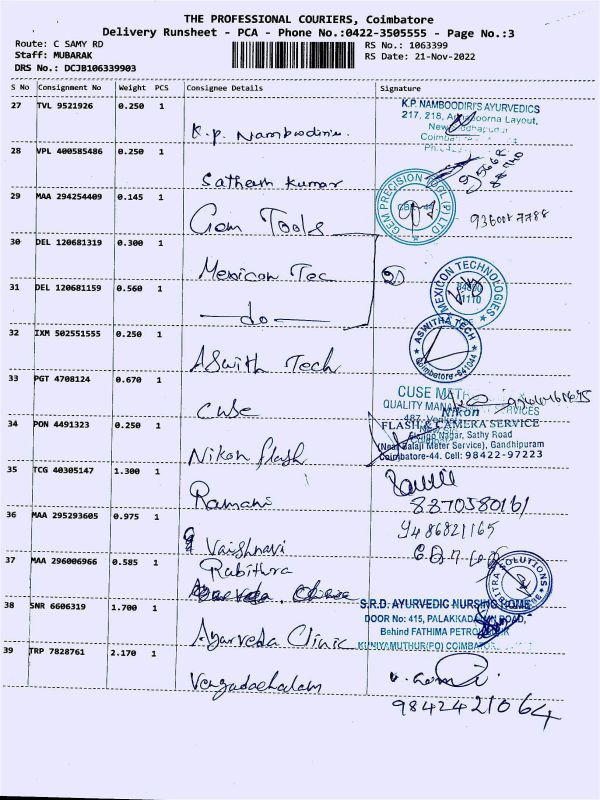 THE PROFESSIONAL COURIERS, Coimbatore
Delivery Runsheet - PCA - Phone No.:0422-3505555 - Page No.:3
Route: C SAMY RD
RS No.: 1063399
Staff: MUBARAK
RS Date: 21-Nov-2022
DRS No.: DCJB106339903
S No Consignment No Weight PCS Consignee Details Signature
27 TVL 9521926 0.250 1
K.P. NAMBOODIRI'S AYURVEDICS
217, 218, Layout,
K.p. Namboodiris.
28 VPL 400585486 0.250 1
Sathesh Kumar
29 MAA 294254409 0.145 1
GEM PRECISION TOOL (P) LTD
Gem Tools
30 DEL 120681319 0.300 1
Mexicon Tec
31 DEL 120681159 0.560 1
MEXICON TECHNOLOGIES
do
32 IXM 502551555 0.250 1
ASWITHA TECH
Coimbatore-641044
ASwith Tech
33 PGT 4708124 0.670 1
CUSE
QUALITY
cuse
34 PON 4491323 0.250 1
Nikon
FLASH & CAMERA SERVICE
Nagar, Sathy Road
(Near Balaji Meter Service), Gandhipuram
Coimbatore-44. Cell: 98422-97223
Nikon flash
35 TCG 40305147 1.300 1
Ramani
8870580161
36 MAA 295293605 0.975 1
9486821165
Vaishnavi
37 MAA 296006966 0.585 1
Rabithra
SOLUTIONS
38 SNR 6606319 1.700 1
S.R.D. AYURVEDIC NURSING HOME
DOOR No: 415, PALAKKAD ROAD,
Behind FATHIMA PETROL
KUNIYAMUTHUR(PO) COIMBATORE
Ayurveda Clinic
39 TRP 7828761 2.170 1
Vengadachalam
9842421064